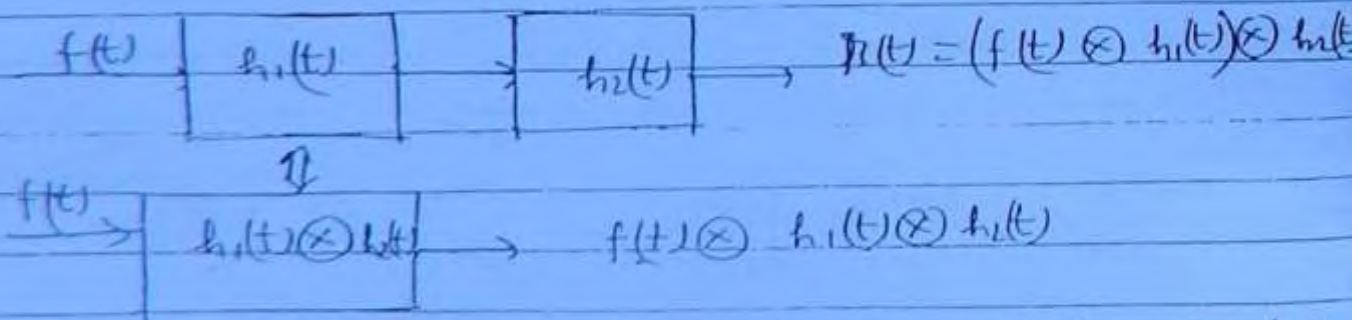 f(t) h₁(t) h₂(t) r(t) = (f(t) ⊗ h₁(t)) ⊗ h₂(t
⇕
f(t) h₁(t) ⊗ h₂(t) f(t) ⊗ h₁(t) ⊗ h₁(t)